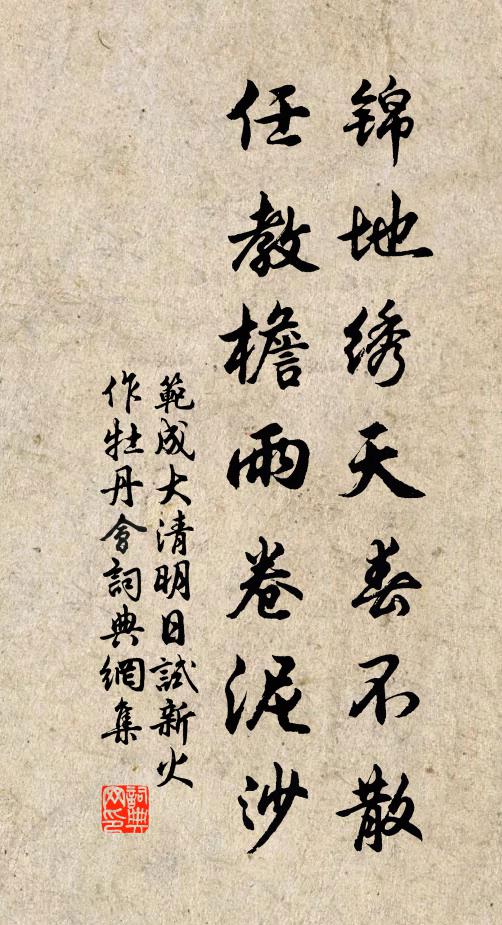 锦地绣天春不散
任教檐雨卷泥沙
範成大清明日試新火
作牡丹會詞典網集
詞典网印